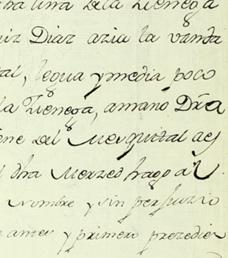 una dela Zienega
Diaz azia la vanda
tal, legua y media poco
la Zienega, amano Dra
ene del Mesquital aes
dha Merzed hago al
Nombre y sin perjuizio
antes y primero prezedier